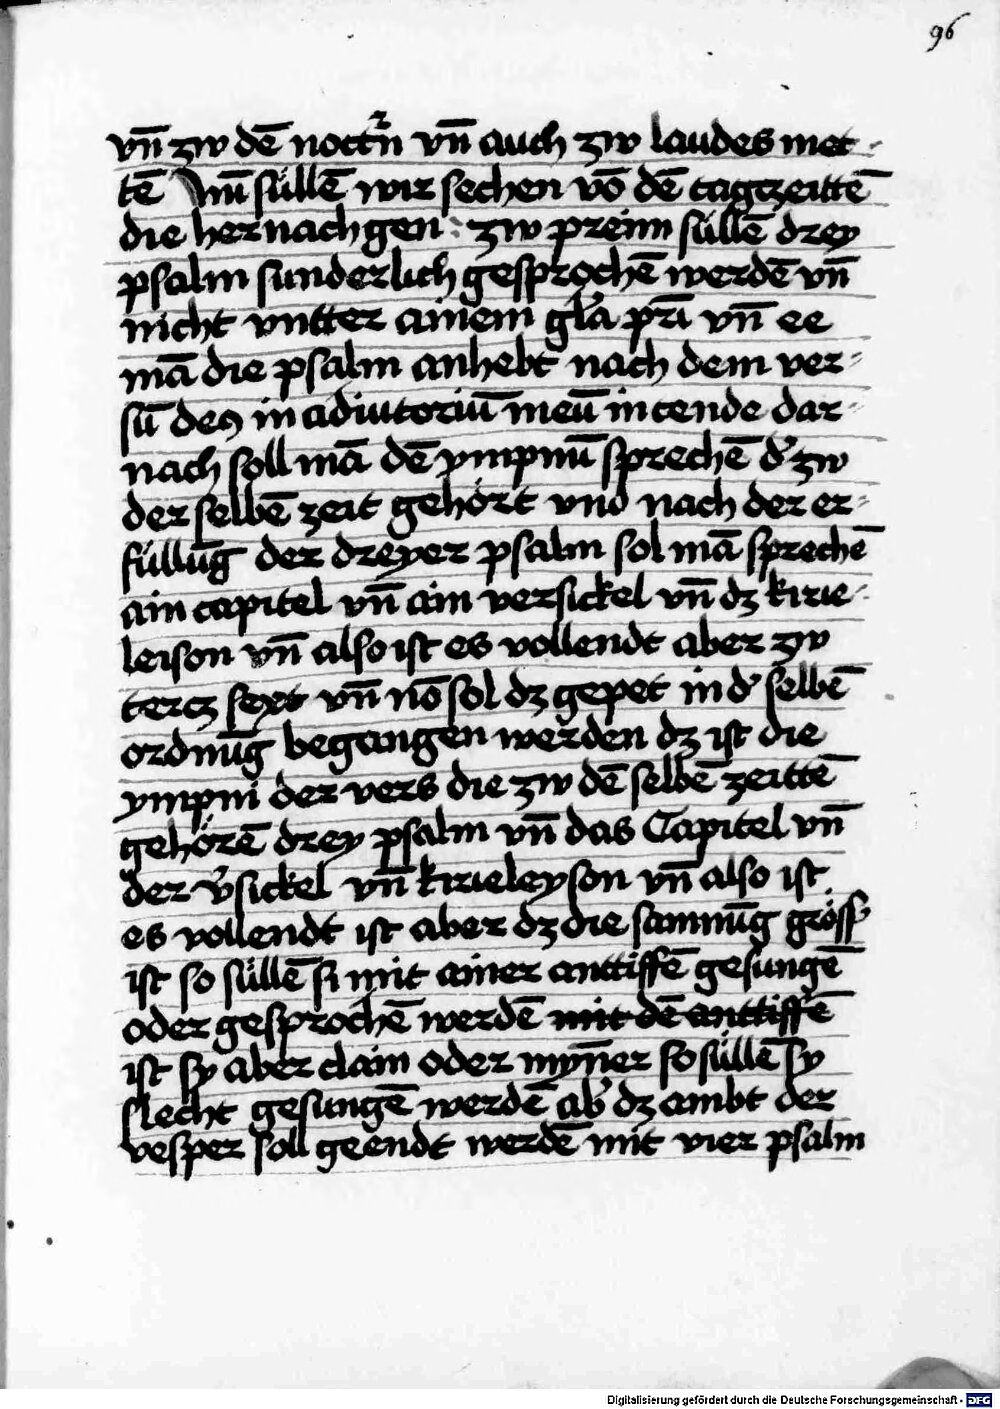 96
vn̄ zw dē nocttn̄ vn̄ auch zw laudes met-
tē Nun süllē wir sechen vō dē tagczeittē
die hernach gen : zw preim süllē drey
psalm sunderlich gesprochē werdē vn̄
nicht vntter ainem gl̄a pr̄i vn̄ ee
mā die psalm anhebt nach dem ver-
sū deꝯ in adiutoriū meū intende dar-
nach soll mā dē ympnū sprechē d' zw
der selbē zeit gehört vnd nach der er-
füllūg der dreyer psalm sol mā sprechē
ain capitel vn̄ ain versickel vn̄ dz kirie-
leison vn̄ also ist es vollendt aber zw
tercz sext vn̄ nō sol dz gepet in d' selbē
ordnūg begangen werden dz ist die
ympni der vers die zw dē selbē zeittē
gehörē drey psalm vn̄ das Capitel vn̄
der v̄sickel vn̄ kirieleyson vn̄ also ist
es vollendt ist aber dz die samnūg gröss'
ist so süllē si mit ainer anttiffē gesungē
oder gesprochē werdē mit dē anttiffē
ist sy aber clain oder myn̄er so süllē sy
slecht gesungē werdē ab' dz ambt der
vesper soll geendt werdē mit vier psalm
Digitalisierung gefördert durch die Deutsche Forschungsgemeinschaft - DFG